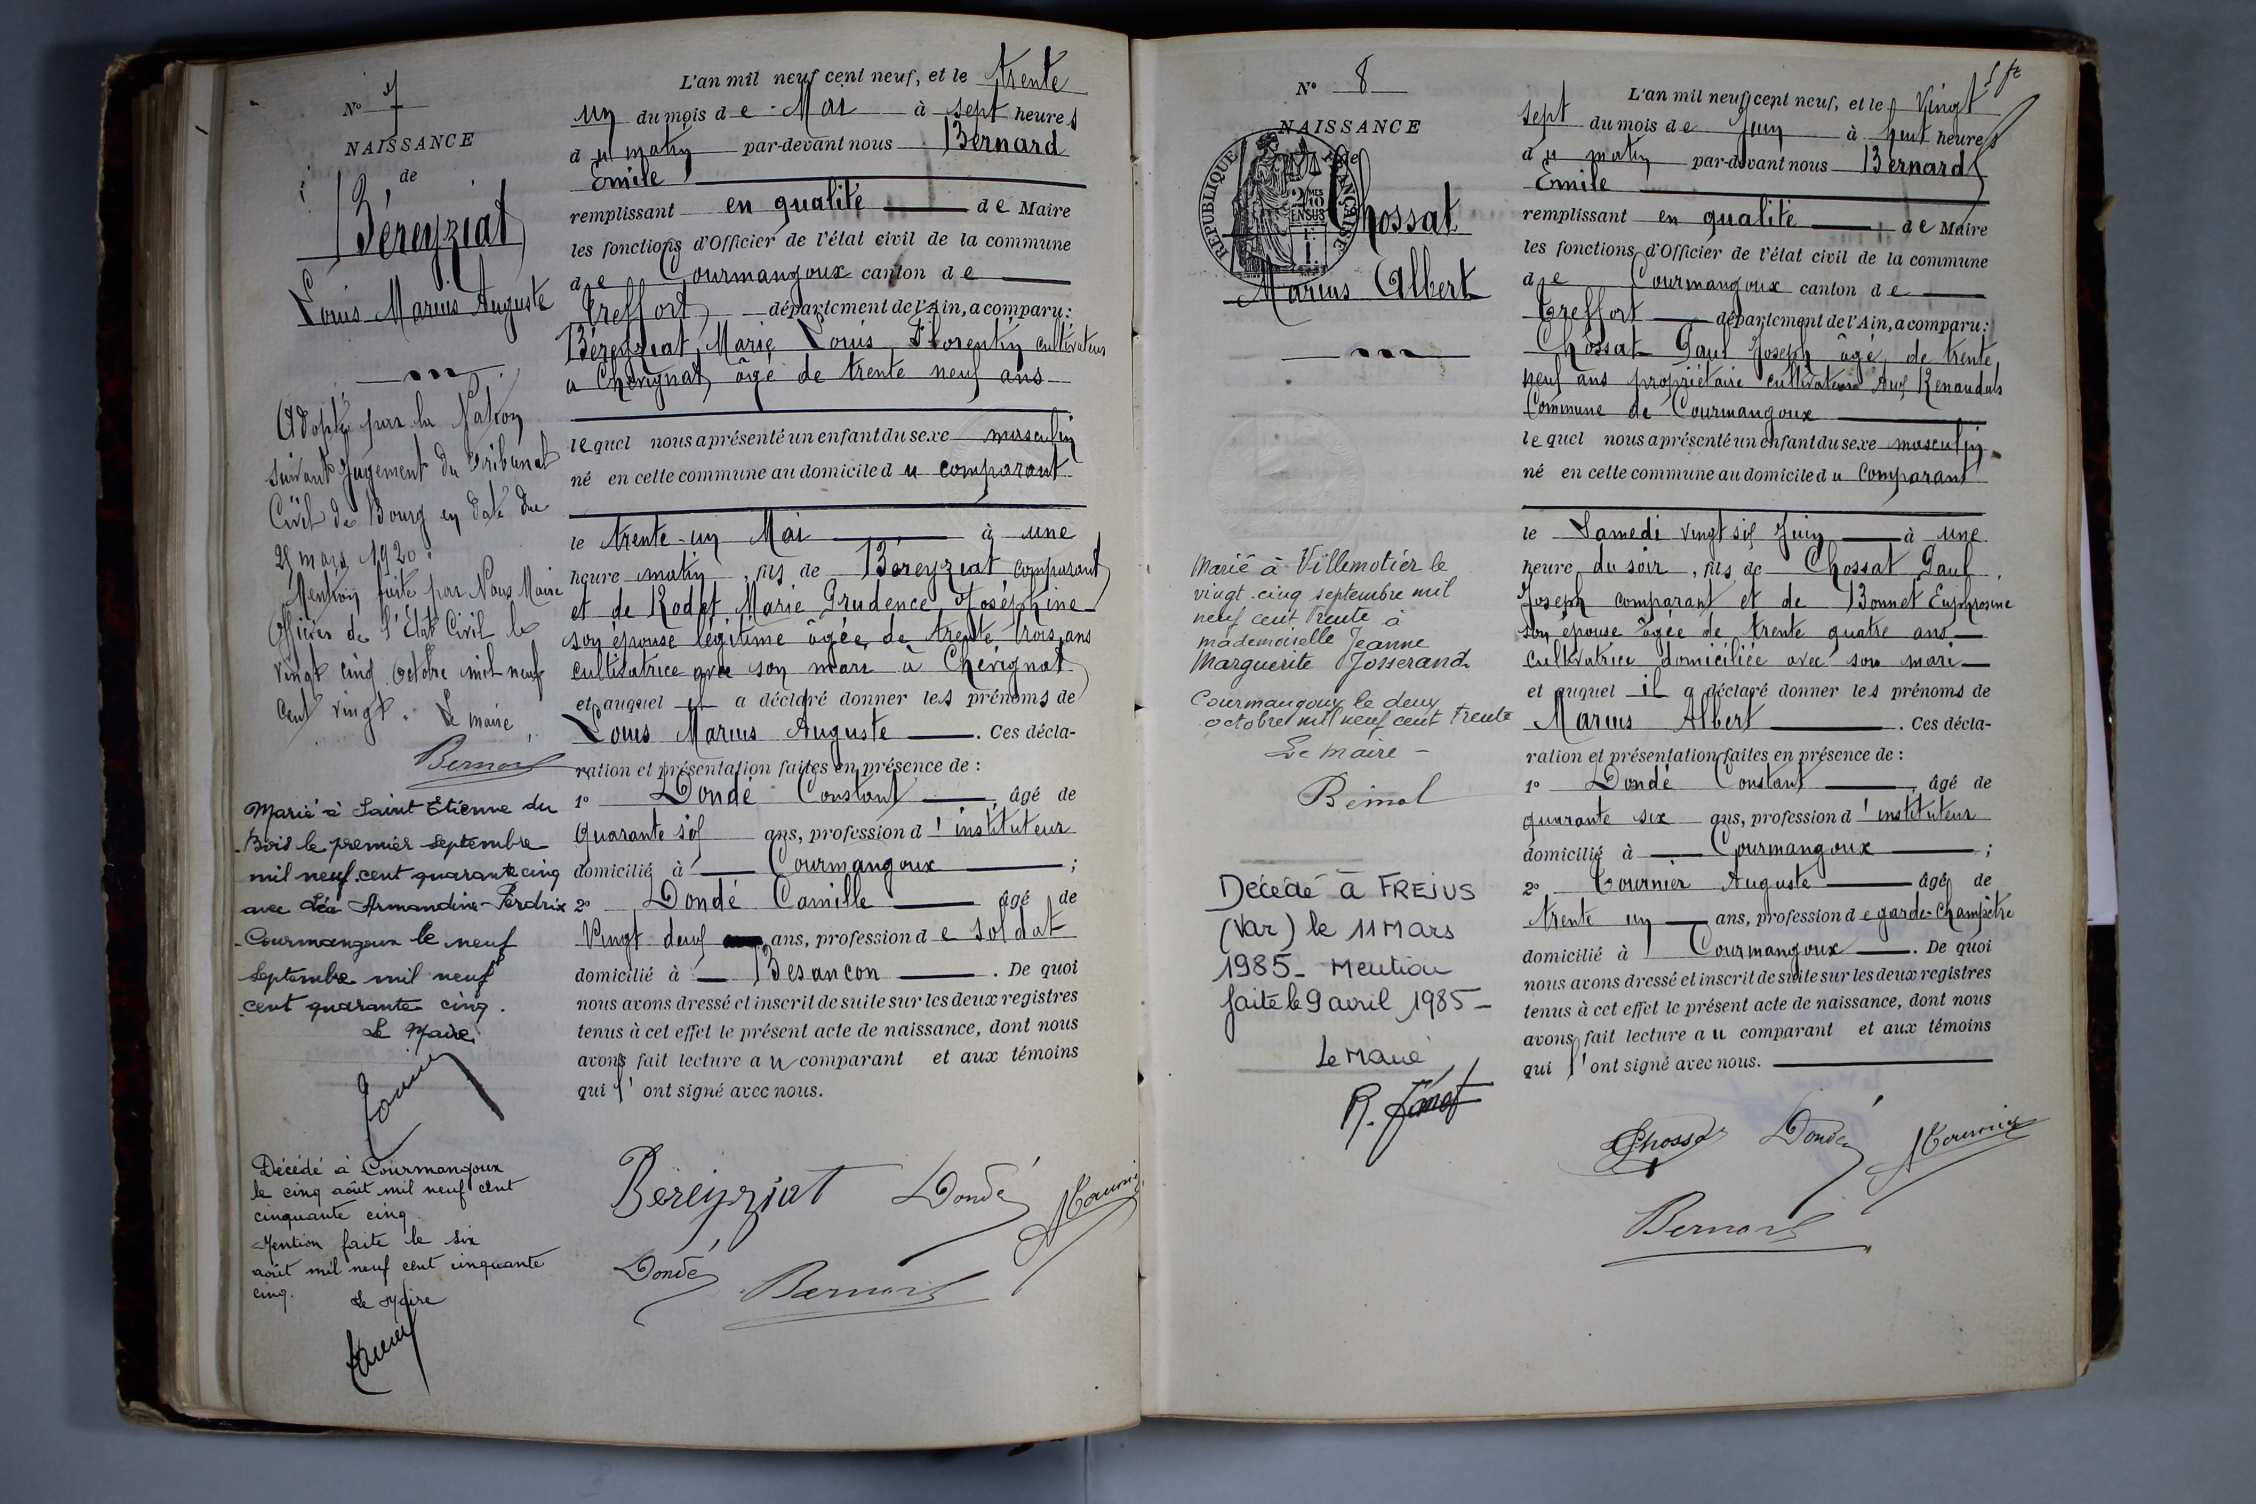 N° 7
NAISSANCE
de
Béreyziat
Louis Marius Auguste
Adopté par la Nation
suivant Jugement du Tribunal
Civil de Bourg en date du
mars 1920.
Mention faite par Nous Maire
Officier de l'Etat Civil le
vingt cinq Octobre mil neuf
cent vingt. Le maire
Bernard
Marié à Saint Etienne du
Bois le premier septembre
mil neuf cent quarante cinq
avec Léa Armandine Perdrix
Courmangoux le neuf
septembre mil neuf
cent quarante cinq.
Le Maire
Décédé à Courmangoux
le cinq août mil neuf cent
cinquante cinq.
Mention faite le six
août mil neuf cent cinquante
cinq.
Le Maire
L'an mil neuf cent neuf, et le trente
un du mois de Mai à sept heures
du matin par-devant nous Bernard
Emile
remplissant en qualité de Maire
les fonctions d'Officier de l'état civil de la commune
de Courmangoux canton de
Treffort département de l'Ain, a comparu:
Béreyziat Marie Louis Florentin cultivateur
a Chevignat, âgé de trente neuf ans
lequel nous a présenté un enfant du sexe masculin
né en cette commune au domicile du comparant
le trente-un Mai à une
heure matin, fils de Béreyziat comparant
et de Rodet Marie Prudence Joséphine
son épouse légitime âgée de trente trois ans
cultivatrice avec son mari à Chevignat
et auquel il a déclaré donner les prénoms de
Louis Marius Auguste. Ces décla-
ration et présentation faites en présence de :
1° Dondé Constant, âgé de
quarante six ans, profession d'instituteur
domicilié à Courmangoux ;
2° Dondé Camille âgé de
Vingt deux ans, profession de soldat
domicilié à Besançon. De quoi
nous avons dressé et inscrit de suite sur les deux registres
tenus à cet effet le présent acte de naissance, dont nous
avons fait lecture au comparant et aux témoins
qui l'ont signé avec nous.
Béreyziat Dondé ATournier
Dondé Bernard
N° 8
NAISSANCE
de
REPUBLIQUE FRANÇAISE
Chossat
Marius Albert
Marié à Villemotier le
vingt-cinq septembre mil
neuf cent trente à
mademoiselle Jeanne
Marguerite Josserand
Courmangoux le deux
octobre mil neuf cent trente
Le maire -
Décédé à FREJUS
(Var) le 11 Mars
1985 - Mention
faite le 9 avril 1985 -
Le Maire
L'an mil neuf cent neuf, et le Vingt
sept du mois de Juin à huit heures
du matin par-devant nous Bernard
Emile
remplissant en qualité de Maire
les fonctions d'Officier de l'état civil de la commune
de Courmangoux canton de
Treffort département de l'Ain, a comparu:
Chossat Paul Joseph âgé de trente
neuf ans propriétaire cultivateur Aux Renauduts
Commune de Courmangoux
lequel nous a présenté un enfant du sexe masculin
né en cette commune au domicile du Comparant
le Samedi vingt six Juin à une
heure du soir, fils de Chossat Paul
Joseph comparant et de Bonnet Euphrosine
son épouse âgée de trente quatre ans
cultivatrice domiciliée avec son mari
et auquel il a déclaré donner les prénoms de
Marius Albert. Ces décla-
ration et présentation faites en présence de :
1° Dondé Constant, âgé de
quarante six ans, profession d'instituteur
domicilié à Courmangoux ;
2° Tournier Auguste âgé de
trente un ans, profession de garde-champêtre
domicilié à Courmangoux. De quoi
nous avons dressé et inscrit de suite sur les deux registres
tenus à cet effet le présent acte de naissance, dont nous
avons fait lecture au comparant et aux témoins
qui l'ont signé avec nous.
Chossat Dondé ATournier
Bernard